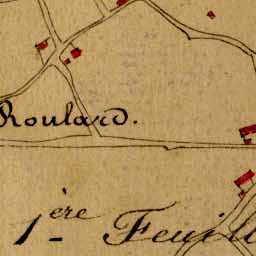 Roulard.
1ère Feuill